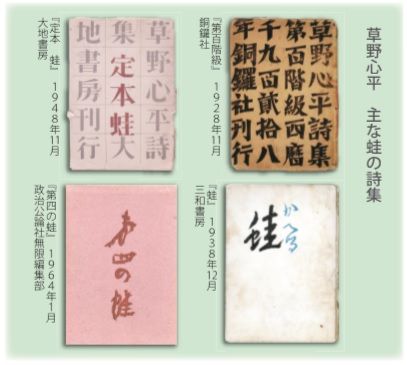 草野心平　主な蛙の詩集
草野心平詩集
第百階級西暦
千九百貳拾八
年銅鑼社刊行
『第百階級』　1928年11月
銅鑼社
草野心平詩
集定本蛙大
地書房刊行
『定本　蛙』　1948年11月
大地書房
かへる
蛙
『蛙』　1938年12月
三和書房
第四の蛙
『第四の蛙』　1964年1月
政治公論社無限編集部